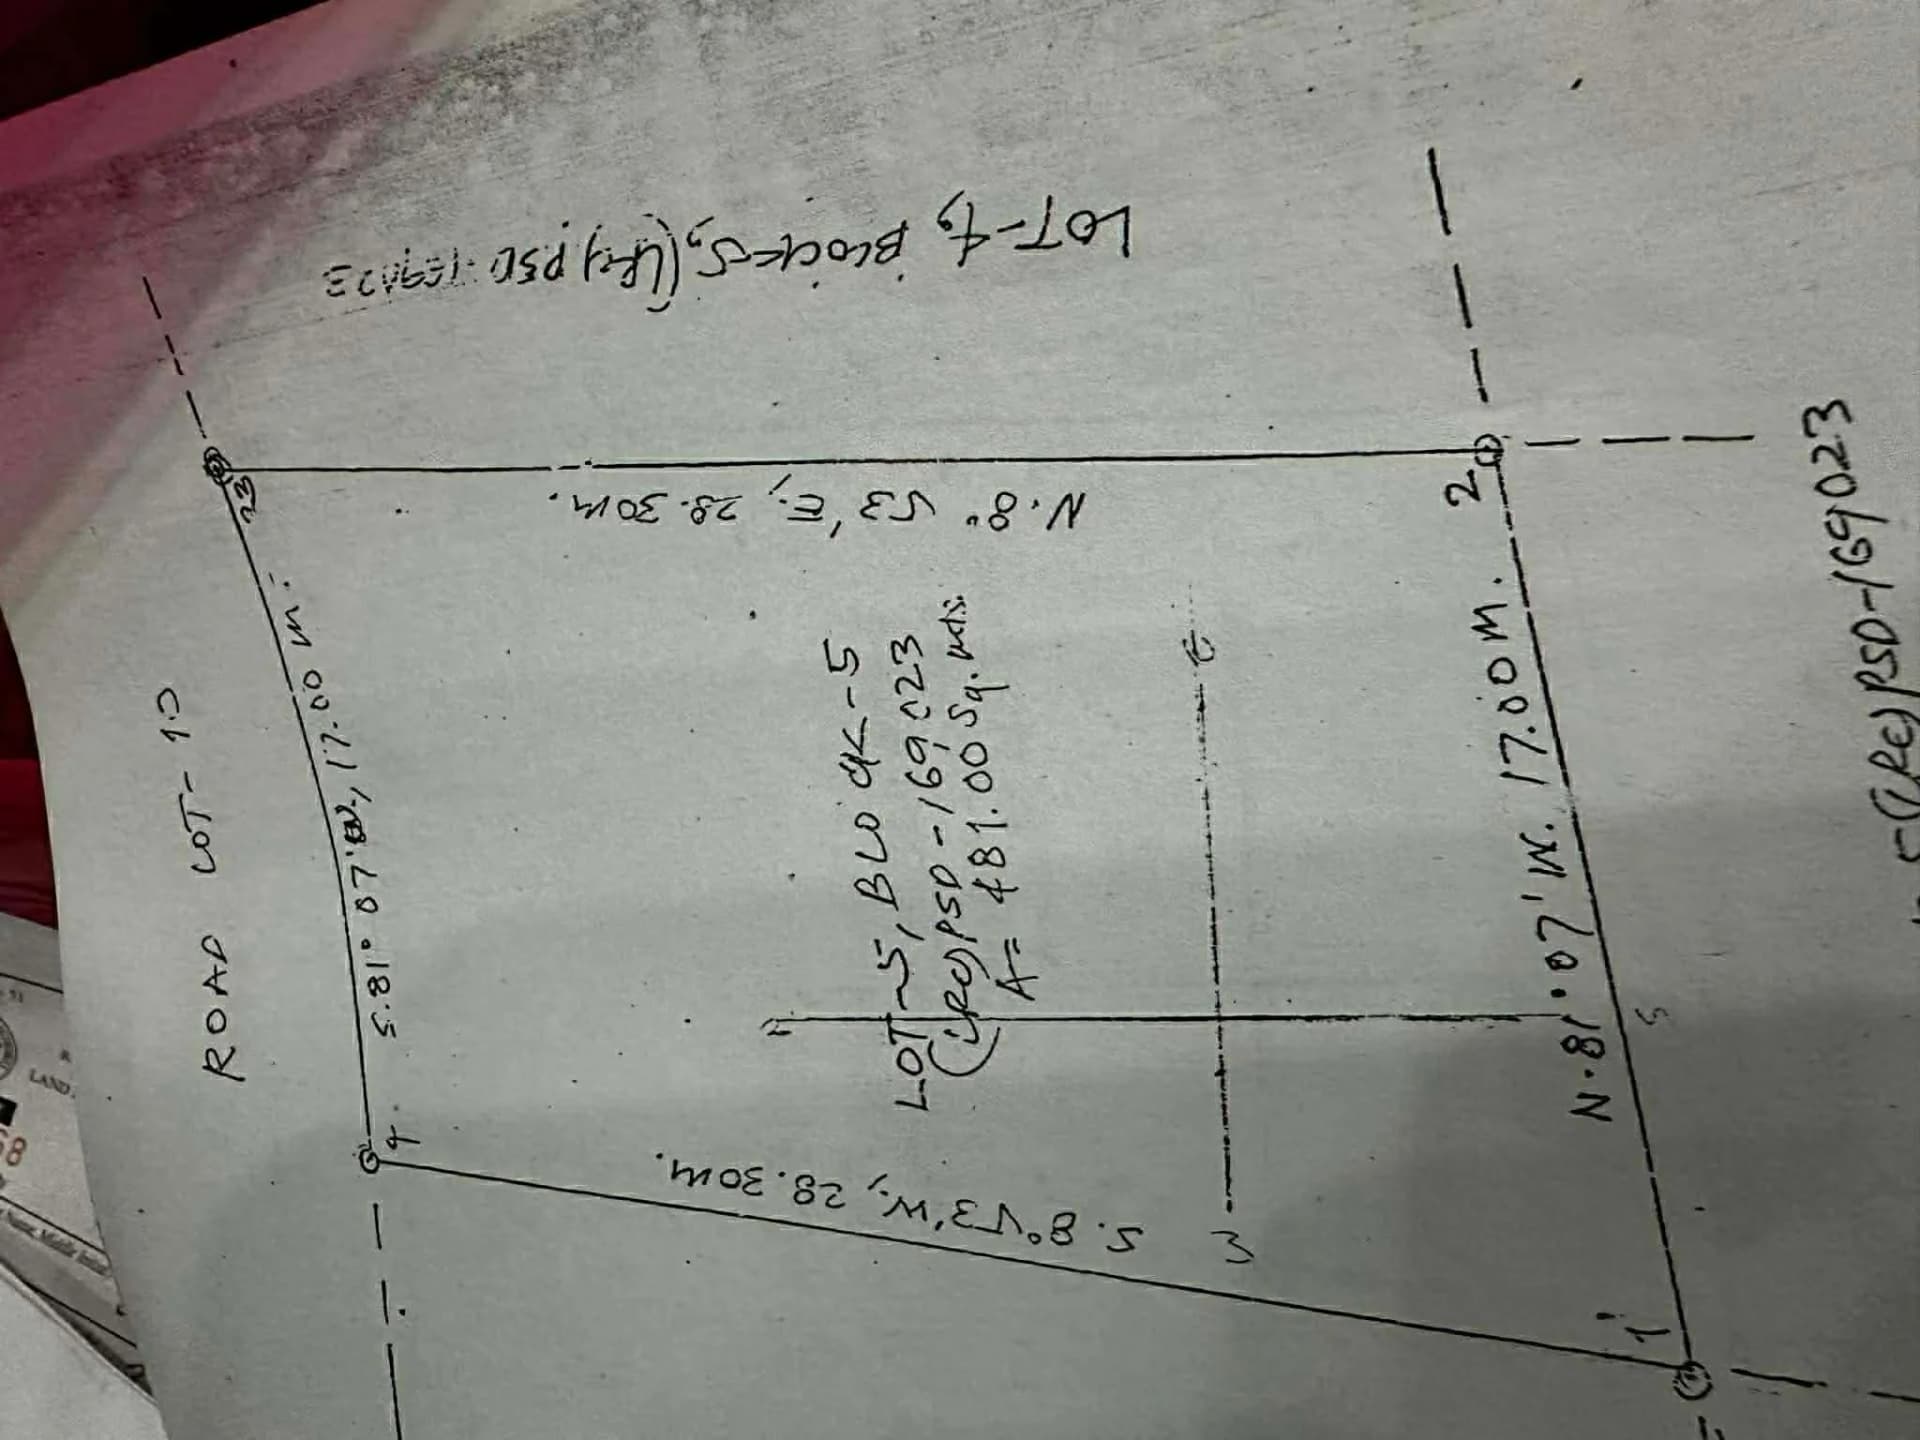 ROAD LOT-10
3
S.81° 07'W., 17.00 m.
4
N.8° 53'E., 28.30m.
S.8° 53'W., 28.30m.
LOT-5, BLOCK-5
(LRC) PSD-169023
A= 481.00 Sq. mts.
E
W
S
LOT-4, BLOCK-5, (LRC) PSD-169023
2
N.81°07'W. 17.00M.
1
(LRC) PSD-169023
LAND
68